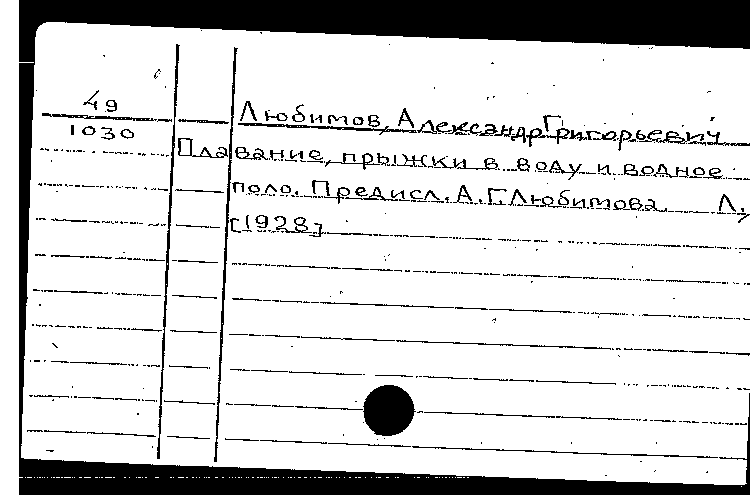 49
1030
Любимов, Александр Григорьевич
Плавание, прыжки в воду и водное
поло. Предисл. А.Г.Любимова. Л.,
[1928]